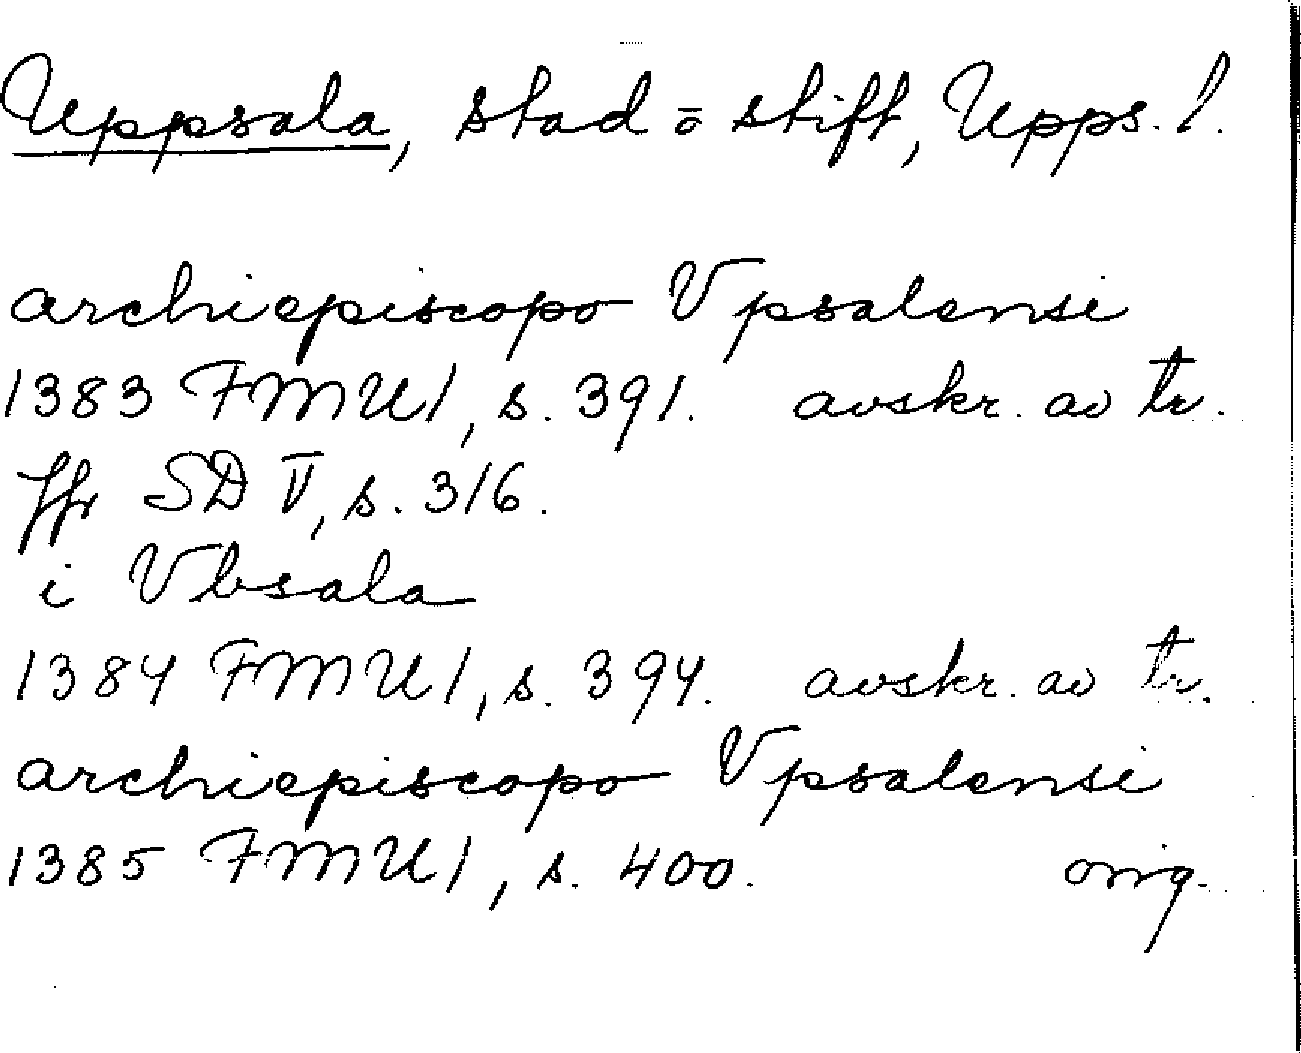 Uppsala, stad o stift, Upps. l.
archiepiscopo Vpsalensi
1383 FMU 1, s. 391. avskr. av tr.
Jfr SD V, s. 316.
i Vbsala
1384 FMU 1, s. 394. avskr. av tr.
archiepiscopo Vpsalensi
1385 FMU 1, s. 400. orig.